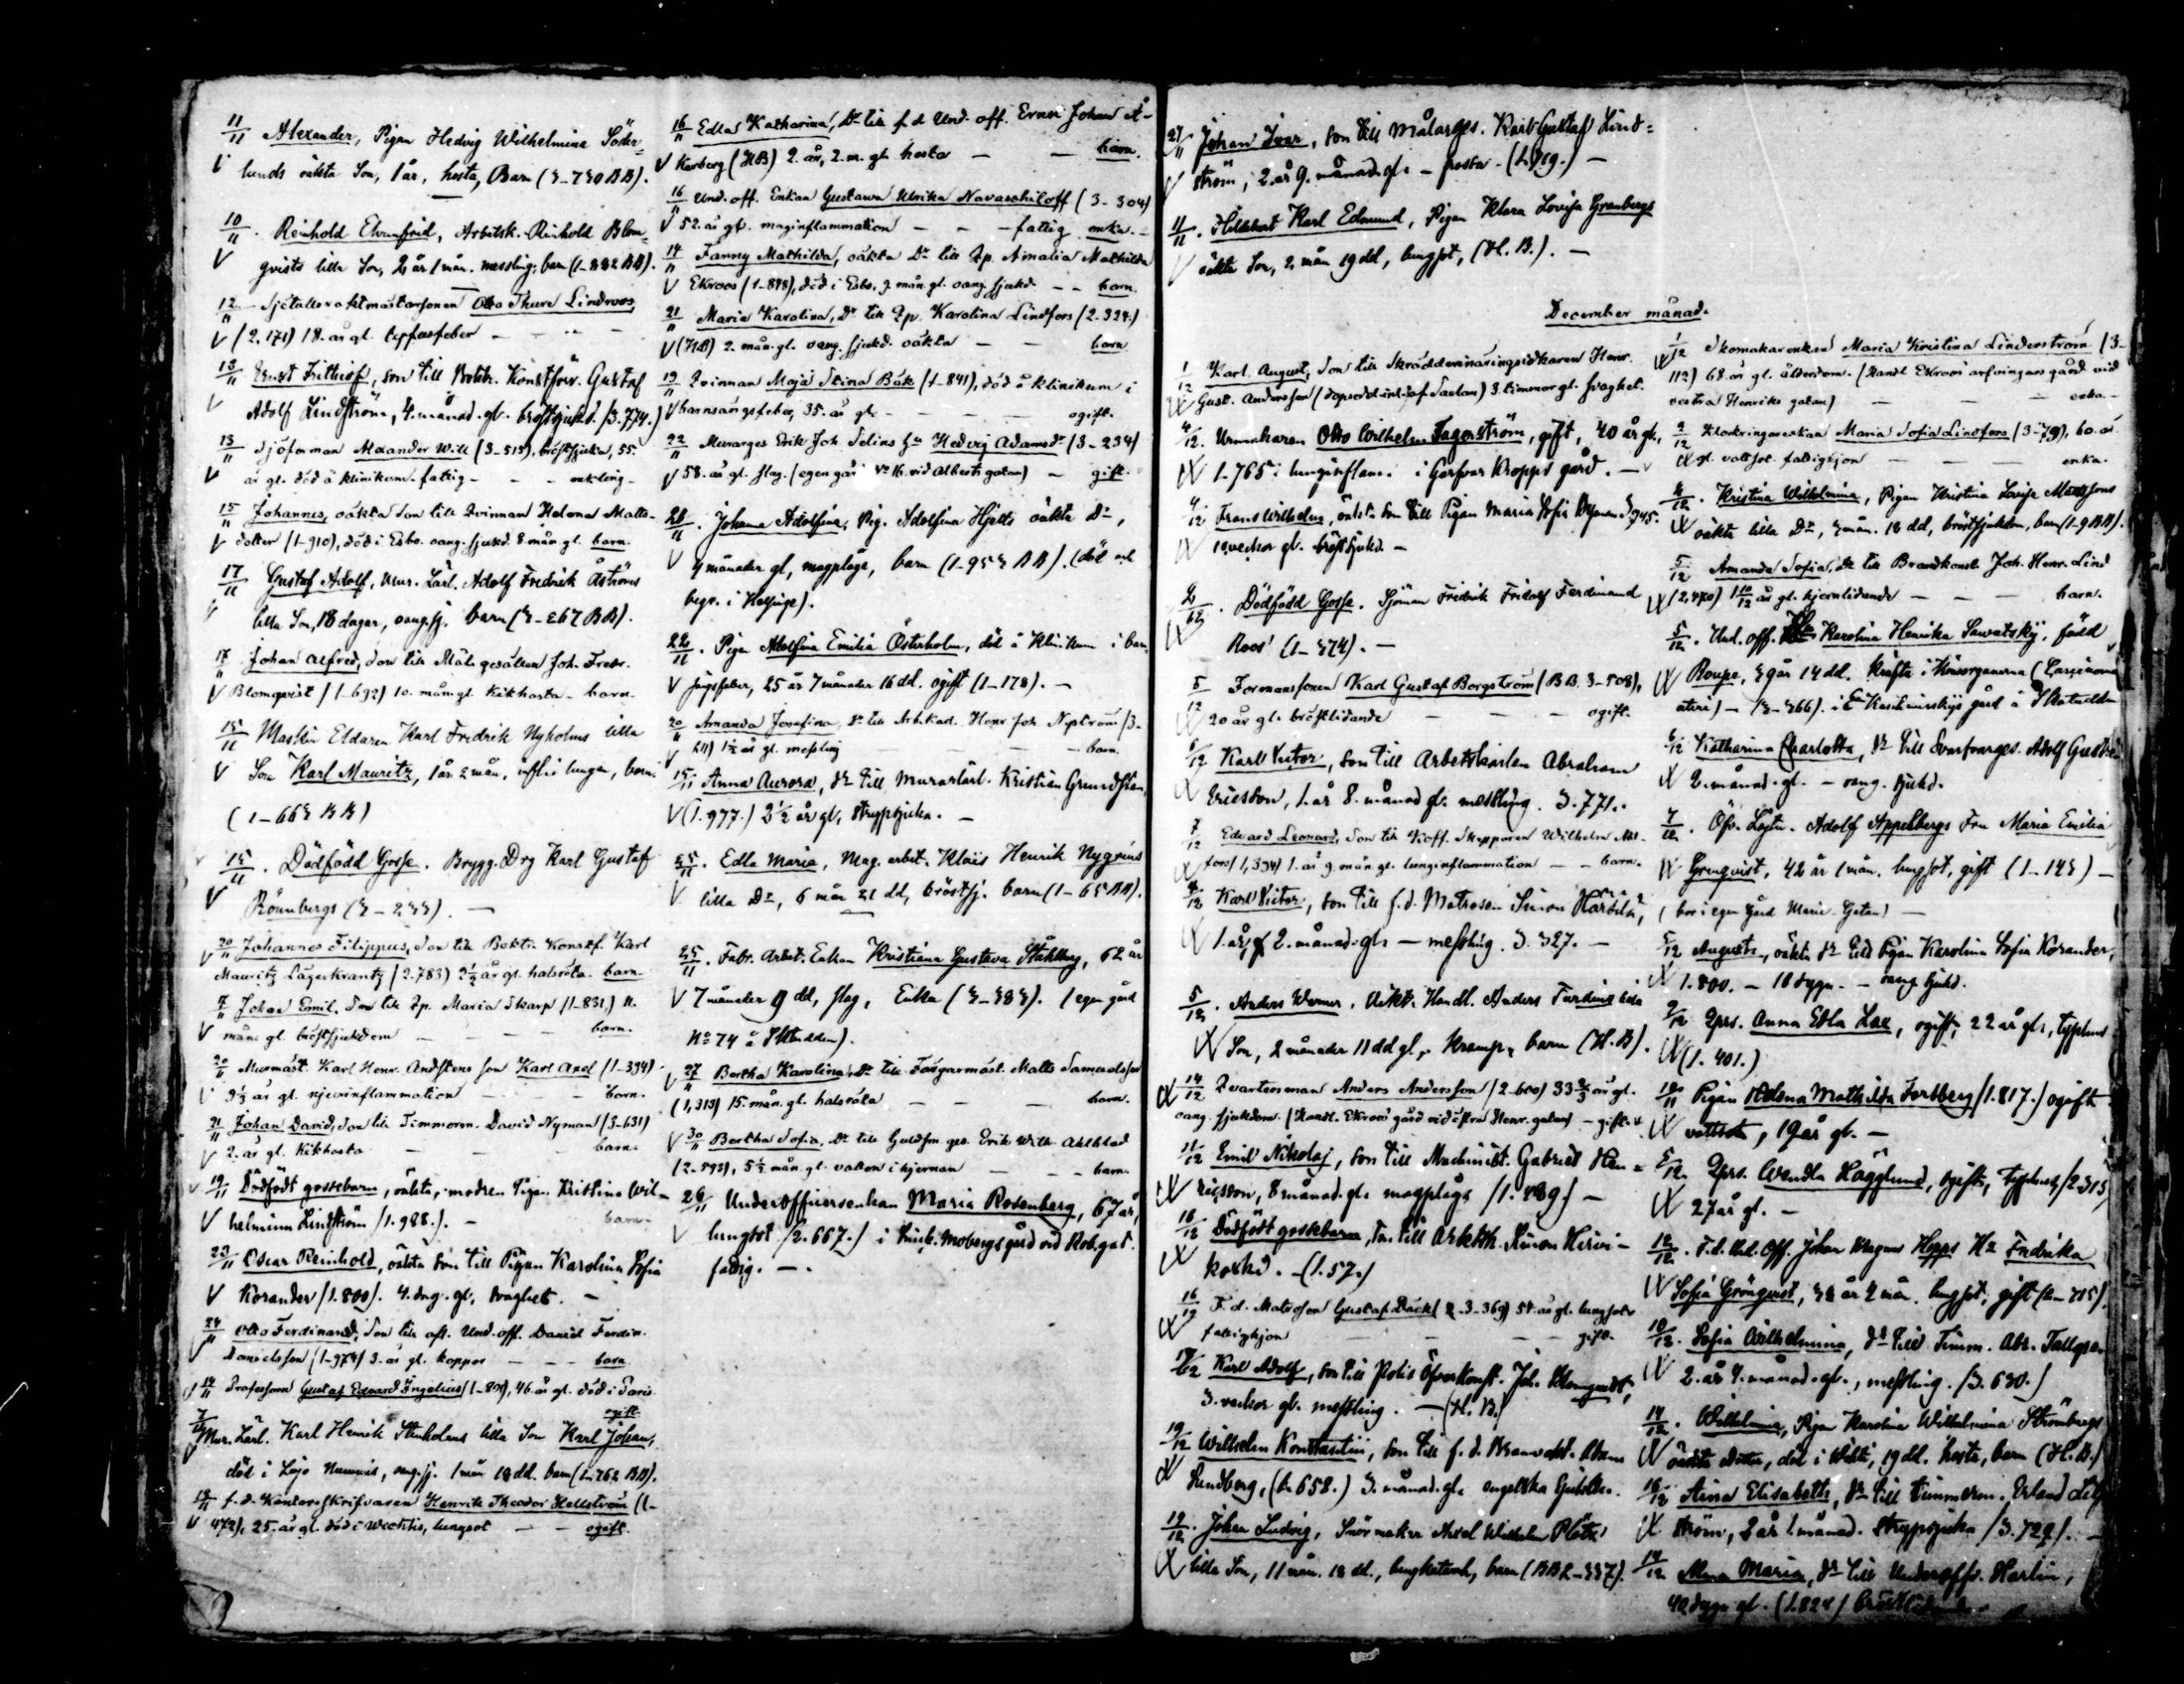 11/11 Alexander, Pigan Hedvig Wilhelmina Söder-
lunds oäkta Son, 1 år, hosta, Barn (3-730 BB).
10/11. Reinhold Ehrenfrid, Arbetsk. Reinhold Blom-
qvists lilla Son, 2 år 1 mån. messling, barn (1-882 BB).
12/11 Sjötullsvaktmästarsonen Otto Thure Lindroos
(2.171) 18. år gl. typfusfeber
13/11 Ernst Frithiof, son till Bokh. Konstförv. Gustaf
Adolf Lindström, 4. månad. gl. bröstsjukd. (3.774.)
13/11 Sjöforman Alexander Will (3-515), bröstsjukd., 55.
år gl. död å klinikum. fattig - enkling -
15/11 Johannes, oäkta Son till Qvinnan Helena Matts-
dotter (1-910), död i Esbo. oang. sjukd. 8 mån gl. barn.
17/11 Gustaf Adolf, Mur. Lärl. Adolf Fredrik Åströms
lilla Son, 18 dagar, oang. sj. barn (3-267 BB).
Johan Alfred, Son till Måle gesällen Joh. Fredr.
Blomqvist (1-692) 10. mån. gl. Kikhosta - barn.
15/11 Maskin Eldaren Karl Fredrik Nyholms lilla
Son Karl Mauritz, 1 år. 2 mån, infl. i lungan, barn.
(1-663 BB)
15/11. Dödfödd Gosse. Brygg. Drg Karl Gustaf
Rönnbergs (3-233). -
20/11 Johannes Filippus, Son till Bokh. Konstf. Karl
Mauritz Lagerkrantz (2.783) 2½ år gl. halsröta. barn.
Johan Emil, Son till Qp. Maria Skarp (1-831) 11.
mån. gl. bröstsjukdom - barn.
20/11 Murmäst. Karl Henr. Andstens son Karl Axel (1-394)
3½ år gl. njurinflammation - barn.
21/11 Johan David, Son till Timmerm. David Nyman (3-631)
2. år gl. Kikhosta - barn.
19/11 Dödfödt gossebarn, oäkta, modren Pigan Kristina Wil-
helmina Lindström (1.988.). - barn.
23/11 Oscar Reinhold, oäkta Son till Pigan Karolina Sofia
Korander (1.800). 4. dag. gl. svaghet. -
24/11 Otto Ferdinand, Son till afl. Und. off. Daniel Ferdin.
Danielsson (1-974) 3. år gl. koppor - barn
14/11 Professorn Gustaf Edvard Ingelius (1-), 46. år gl. död i Paris.
ogift
Mur. Lärl. Karl Henrik Stenholms lilla Son Karl Johan,
död i Lojo Nummis, oang. sj. 1 mån 18 dd. barn (2-762 BB).
13/11 f.d. Kontorsskrifvaren Henrik Theodor Hellström (1-
472), 25. år gl. död i Wichtis, lungsot - ogift.
16/11 Edla Katharina, Dr till f.d. Und. off. Ernst Johan Å-
Kerberg (HB) 2. år, 2. m. gl. hosta - barn.
16/11 Und. off. Enkan Gustava Ulrika Navaschiloff (3-304)
52. år gl. maginflammation - fattig enka. -
14/11 Fanny Mathilda, oäkta Dr till Qp. Amalia Mathilda
Ekroos (1-898), död i Esbo, 9 mån. gl. oang. sjukd. - barn.
21/11 Maria Karolina, Dr till Qp. Karolina Lindfors (2.324)
(HB) 2. mån. gl. oang. sjukd. oäkta - barn
19/11 Qvinnan Maja Stina Bäk (1-841), död å klinikum i
barnsängsfeber, 35. år gl. - ogift.
22/11 Murarges. Erik Joh. Selins Hu Hedvig Adamsdr (3-234)
58. år gl. slag. (egen gård No 16. vid Albertsgatan) - gift.
28/11. Johanna Adolfina, Pig. Adolfina Hjelts oäkta Dr,
4 månader gl, magplåga, barn (1-953 BB). (död och
begr. i Helsinge).
22/11. Pigan Adolfina Emilia Österholm, död å Klinikum i barn-
sängsfeber, 25 år 7 månader 16 dd. ogift (1-178). -
20/11 Amanda Josefina, Dr till Arb.karl. Henr Joh Nyström (3-
211) 1½ år gl messling - barn.
15/11 Anna Aurora, dr till Murarlärl. Kristian Grundsten,
(1.977.) 2½ år gl, strypsjuka. -
25/11. Edla Maria, Mag. arbet. Klais Henrik Nygréns
lilla Dr, 6 mån 21 dd, bröstsj. barn (1-65 BB).
25/11. Fabr. Arbet. Enkan Kristiana Gustava Ståhlberg, 62 år
7 månader 9 dd, slag, Enka (3-383). (egen gård
No 74 å Skatudden).
27/11 Bertha Karolina, Dr till Fångarmäst. Matts Samuelsson
(1,313) 15. mån. gl. halsröta - barn.
30/11 Bertha Sofia, Dr till Guldsm. ges. Erik Wilh. Ahlblad
(2-592), 5½ mån. gl. vatten i hjernan - barn.
26/11 Underofficersenkan Maria Rosenberg, 67 år,
lungsot (2.667.) i Mobergs gård vid Rob.gat.
fattig. -
27/11 Johan Ivar, Son till Målarges. Karl Gustaf Lind-
ström, 2. år 9. månad. gl. - frossa - -
11/11. Hildebert Karl Edmund, Pigan Klara Lovisa Granbergs
oäkta Son, 2 mån 19 dd, lungsot, (H.B.). -
December månad.
1/12 Karl August, Son till Skräddarnäringsidkaren Henr.
Gust. Andersson 3. timmar gl. svaghet.
4/12. Urmakaren Otto Wilhelm Fagerström, gift, 40 år gl.,
1.765. lunginflam. i Garfvar Kropps gård. -
4/12 Frans Wilhelm, oäkt. Son till Pigan Maria Sofia 3.945.
10 veckor gl. bröstsjukd. -
2/12. Dödfödd Gosse. Sjöman Fredrik Fridolf Ferdinand
Roos' (1-374). -
5/12 Formanssonen Karl Gustaf Borgström (BB. 3-508),
20 år gl. bröstlidande - ogift.
6/12 Karl Victor, Son till Arbetskarlen Abraham
Ericsson, 1. år 8. månad gl. messling. 3.771.
7/12 Edvard Leonard, Son till Koff. Skepparen Wilhelm
(1,394) 1. år 9 mån gl. lunginflammation - barn.
Karl Victor, Son till f.d. Matrosen Simon
1. år, 2. månad. gl. - messling. 3.327. -
5/12. Anders Werner, Vikt. Handl. Anders Furdins lilla
Son, 2 månader 11 dd gl., Kramp, barn (H.B.).
14/12 Qvartersman Anders Andersson (2.600) 33 år gl.
oang. sjukdom. (Handl. Ekroos' gård vid östra Henr. gatan) - gift.
11/12 Emil Nikolaj, Son till Machinist. Gabriel Hen-
ricsson, 8 månad. gl. magplåga (1.439.) -
16/12 Dödfödt gossebarn, Son till Arbetsk. Simon Hirvi-
koski. - (1.57.)
16/12 F.d. Matrosen Gustaf Däck (3-369) 54. år gl. lungsot
fattighjon - gift.
Karl Adolf, Son till Polis Öfverkonst. Joh. Blomqvist,
3. veckor gl. messling. - (H.B.)
19/12 Wilhelm Konstantin, Son till f.d. Adam
Lindberg, (2.658.) 3. månad. gl. engelska Sjukan.
19/12. Johan Ludvig, Snörmakar Axel Wilhelm Pletz'
lilla Son, 11 mån. 18 dd., lungkatarrh, barn (BB 2-337).
1/12 Skomakarenkan Maria Kristina Linderström (3-
112) 68. år gl. ålderdom. (Handl Ekroos' arfvingars gård vid
vestra Henriks gatan) - enka. -
2/12 Klockringarenkan Maria Sofia Lindfors (3-79), 60. år
gl. vattsot. fattighjon - enka.
4/12. Kristina Wilhelmina, Pigan Kristina Lovisa Mattssons
oäkta lilla Dr, 3 mån. 18 dd, bröstsjukdom, barn (1-9 BB).
5/12 Amanda Sofia, Dr till Brandkonst. Joh. Henr. Lind
(2,470) 1 10/12 år gl. hjernlidande - barn.
5/12. Und. off. Karolina Henrika Sawatskij, född
Roupe, 39 år 14 dd. Kräfta i Könsorganerna (Carcinoma
uteri) - (3-366). i Enk Kaschinskijs gård å Skatudden
6/12 Katharina Charlotta, Dr till Svarfvarges. Adolf
2. månad. gl. - oang. sjukd.
7/12. Öfv. Löjtn. Adolf Appelbergs Fru Maria Emilia
Grenqvist, 42 år 1 mån. lungsot, gift (1-143) -
(bor i egen Gård Marie-Gatan) -
5/12 Augusta, oäkta dr till Pigan Karolina Sofia Korander,
1.800. - 18 dygn. - oang. sjukd.
9/12 Qprs. Anna Edla Lax, ogift, 22 år gl., typhus
(1.401.)
Pigan Helena Mathilda Forsberg (1.817.) ogift
vattsot, 19 år gl. -
5/12 Qprs. Wendla Hägglund, ogift, typhus, (2.315)
27 år gl. -
12/12. F.d. Und. Off. Johan Magnus Hopps Hu Fredrika
Sofia Grönqvist, 38 år 2 mån. lungsot, gift (2-715).
10/12. Sofia Wilhelmina, dr till Timm. Abr. Tallgren
2. år 4. månad. gl., messling. (3.630.)
14/12. Wilhelmina, Pigan Karolina Wilhelmina Strömbergs
oäkta dotter, död i Wichtis, 19 dd. hosta, barn (H.B.)
16/12 Aina Elisabeth, Dr till Timmerm. Erland
ström, 2 år 1. månad. Strypsjuka (3.729). -
14/12 Alma Maria, Dr till Underoff. Harlin,
40 dygn gl. (1.824)